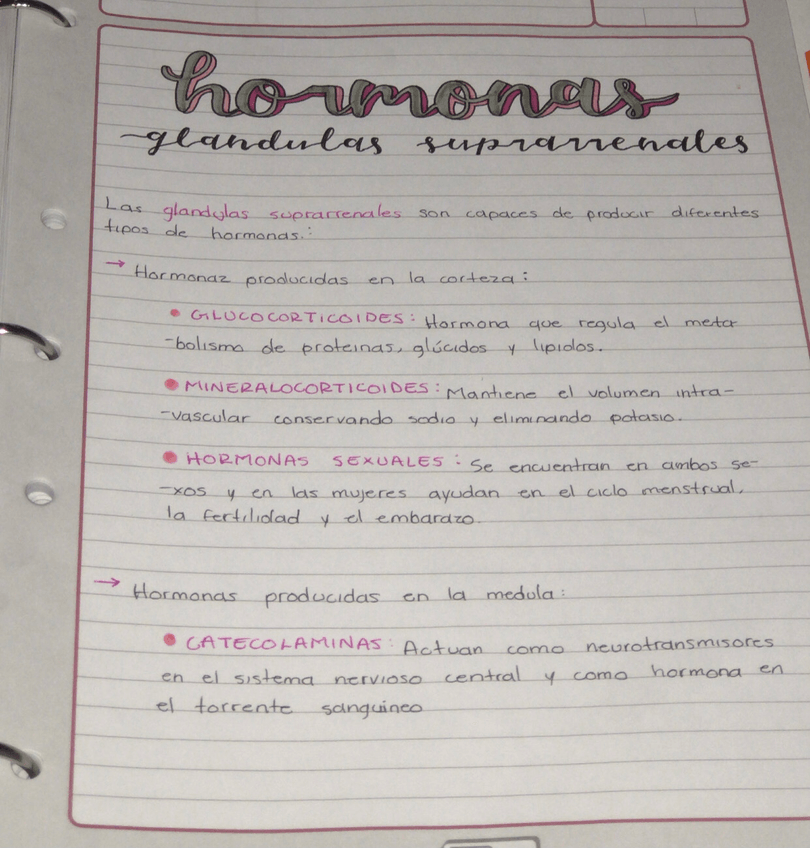 hormonas
glandulas suprarrenales
Las glandulas suprarrenales son capaces de producir diferentes
tipos de hormonas.:
→ Hormonaz producidas en la corteza:
• GLUCOCORTICOIDES: Hormona que regula el meta-
-bolismo de proteinas, glúcidos y lipidos.
• MINERALOCORTICOIDES: Mantiene el volumen intra-
-vascular conservando sodio y eliminando potasio.
• HORMONAS SEXUALES: Se encuentran en ambos se-
-xos y en las mujeres ayudan en el ciclo menstrual,
la fertilidad y el embarazo.
→ Hormonas producidas en la medula:
• CATECOLAMINAS: Actuan como neurotransmisores
en el sistema nervioso central y como hormona en
el torrente sanguineo